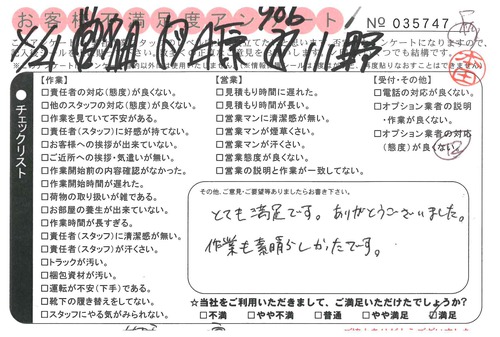 お客様不満足度アンケート
№ 035747
チェックリスト
【作業】
□責任者の対応(態度)が良くない。
□他のスタッフの対応(態度)が良くない。
□作業を見ていて不安がある。
□責任者(スタッフ)に好感が持てない。
□お客様への挨拶が出来ていない。
□ご近所への挨拶・気遣いが無い。
□作業開始前の内容確認がなかった。
□作業開始時間が遅れた。
□荷物の取り扱いが雑である。
□お部屋の養生が出来ていない。
□作業時間が長すぎる。
□責任者(スタッフ)に清潔感が無い。
□責任者(スタッフ)が汗くさい。
□トラックが汚い。
□梱包資材が汚い。
□運転が不安(下手)である。
□靴下の履き替えをしてない。
□スタッフにやる気がみられない。
【営業】
□見積もり時間に遅れた。
□見積もり時間が長い。
□営業マンに清潔感が無い。
□営業マンが煙草くさい。
□営業マンが汗くさい。
□営業態度が良くない。
□営業の説明と作業が一致してない。
【受付・その他】
□電話の対応が良くない。
□オプション業者の説明
・作業が良くない。
□オプション業者の対応
(態度)が良くない。
その他、ご意見・ご要望等ありましたらお書き下さい。
とても満足です。ありがとうございました。
作業も素晴らしかったです。
☆当社をご利用いただきまして、ご満足いただけたでしょうか?
□不満 □やや不満 □普通 □やや満足 ☑満足